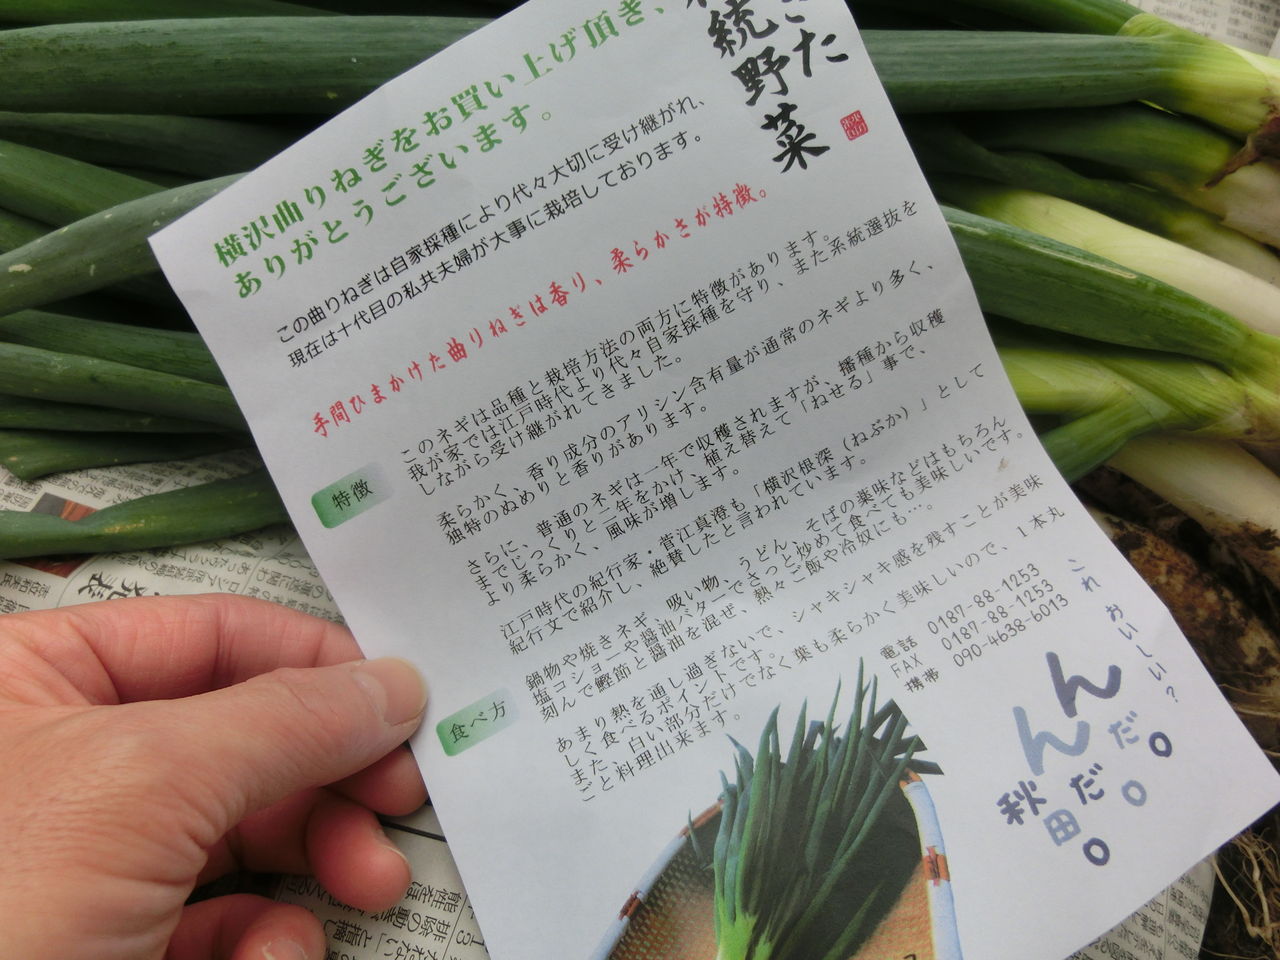 横沢曲りねぎをお買い上げ頂き、
ありがとうございます。
きた
統野菜
この曲りねぎは自家採種により代々大切に受け継がれ、
現在は十代目の私共夫婦が大事に栽培しております。
手間ひまかけた曲りねぎは香り、柔らかさが特徴。
特徴
このネギは品種と栽培方法の両方に特徴があります。
我が家では江戸時代より代々自家採種を守り、また系統選抜を
しながら受け継がれてきました。
柔らかく、香り成分のアリシン含有量が通常のネギより多く、
独特のぬめりと香りがあります。
さらに、普通のネギは一年で収穫されますが、播種から収穫
までじっくりと二年をかけ、植え替えて「ねせる」事で、
より柔らかく、風味が増します。
江戸時代の紀行家・菅江真澄も「横沢根深（ねぶか）」として
紀行文で紹介し、絶賛したと言われています。
食べ方
鍋物や焼きネギ、吸い物、うどん、そばの薬味などはもちろん
塩コショーや醤油バターでさっと炒めて食べても美味しいです。
刻んで鰹節と醤油を混ぜ、熱々ご飯や冷奴にも…。
あまり熱を通し過ぎないで、シャキシャキ感を残すことが美味
しく食べるポイントです。
また、白い部分だけでなく葉も柔らかく美味しいので、1本丸
ごと料理出来ます。
電話 0187-88-1253
FAX 0187-88-1253
携帯 090-4638-6013
これ おいしい？
んだ。
んだ。
秋田。